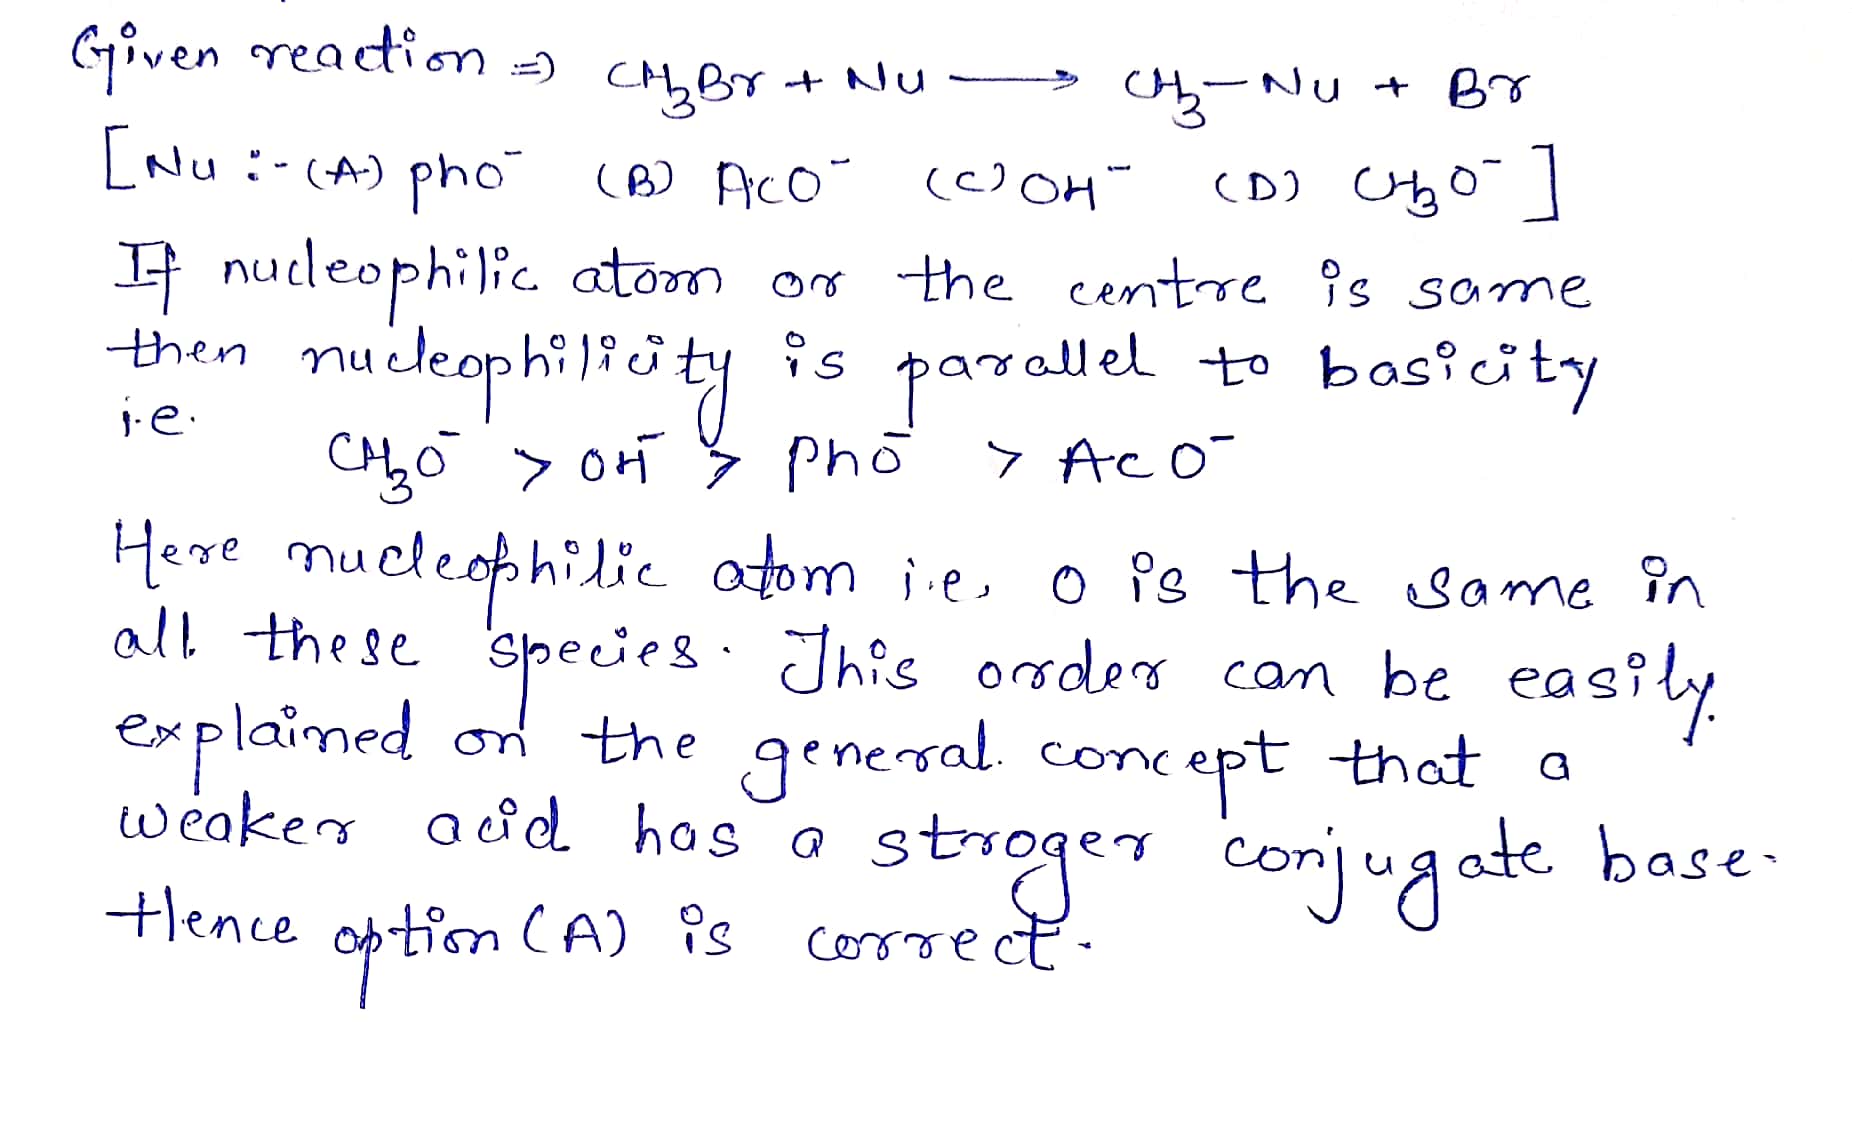 Given reaction ⇒ CH₃Br + Nu ⟶ CH₃–Nu + Br
[Nu :- (A) pho⁻ (B) AcO⁻ (C) OH⁻ (D) CH₃O⁻]
If nucleophilic atom or the centre is same
then nucleophilicity is parallel to basicity
i.e.
CH₃O⁻ > OH⁻ > pho⁻ > AcO⁻
Here nucleophilic atom i.e. O is the same in
all these species. This order can be easily.
explained on the general. concept that a
weaker acid has a stroger conjugate base.
Hence option (A) is correct.